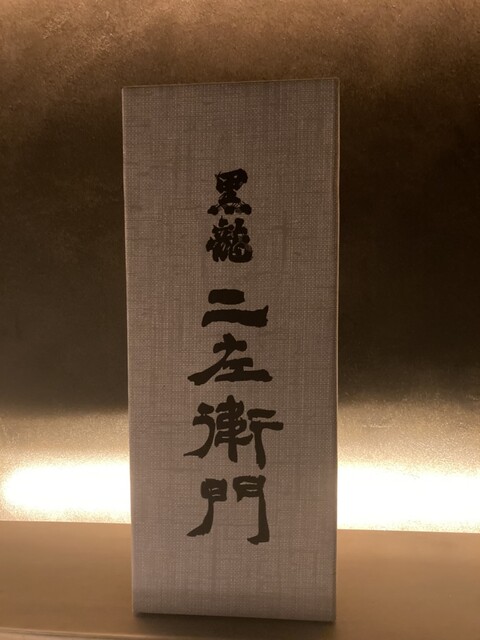 黒龍
二左衛門